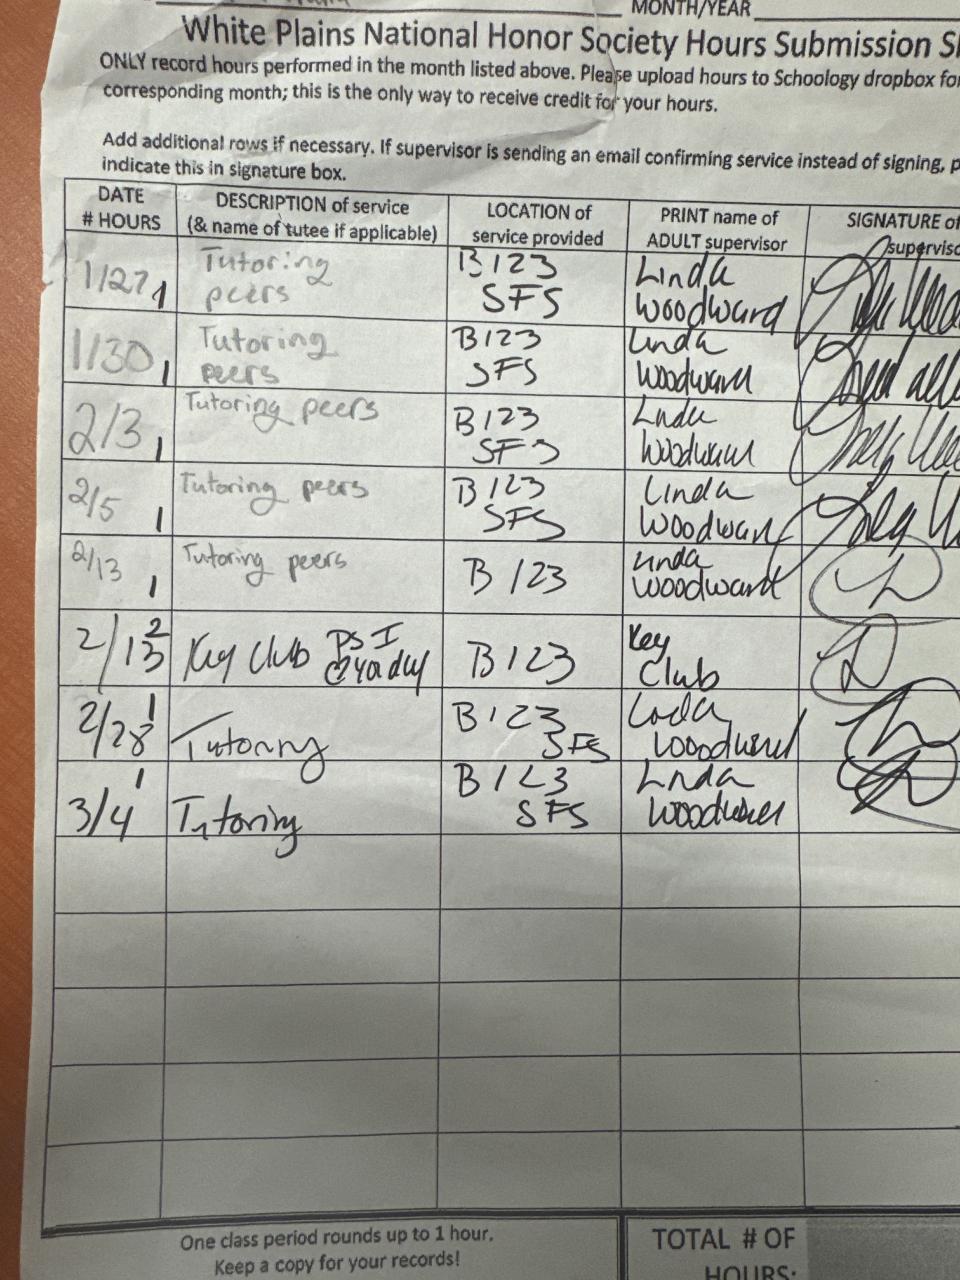 MONTH/YEAR
White Plains National Honor Society Hours Submission
ONLY record hours performed in the month listed above. Please upload hours to Schoology dropbox for
corresponding month; this is the only way to receive credit for your hours.
Add additional rows if necessary. If supervisor is sending an email confirming service instead of signing, p
indicate this in signature box.
DATE
# HOURS
DESCRIPTION of service
(& name of tutee if applicable)
LOCATION of
service provided
PRINT name of
ADULT supervisor
SIGNATURE of
supervisor
1/27 1
Tutoring
peers
B123
SFS
Linda
Woodward
1/30 1
Tutoring
peers
B123
SFS
Linda
Woodward
2/3 1
Tutoring peers
B123
SFS
Linda
Woodward
2/5 1
Tutoring peers
B123
SFS
Linda
Woodward
2/13 1
Tutoring peers
B 123
Linda
Woodward
2/13 2
Key Club
B123
Key
Club
2/28 1
Tutoring
B123
SFS
Linda
Woodward
3/4 1
Tutoring
B123
SFS
Linda
Woodward
One class period rounds up to 1 hour.
Keep a copy for your records!
TOTAL # OF
HOURS: